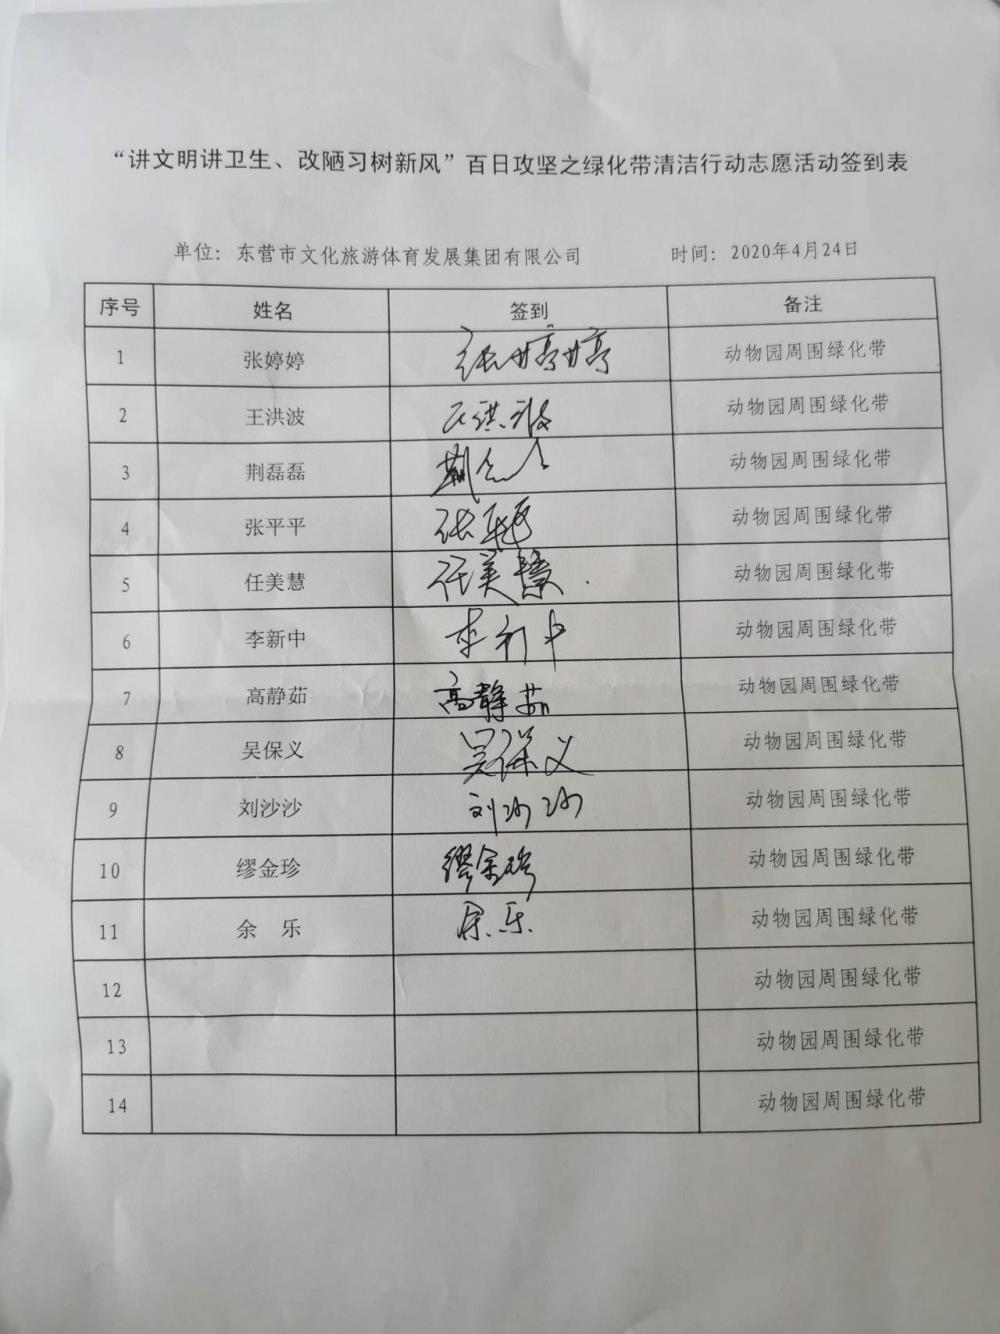 “讲文明讲卫生、改陋习树新风”百日攻坚之绿化带清洁行动志愿活动签到表
单位：东营市文化旅游体育发展集团有限公司 时间：2020年4月24日
序号 姓名 签到 备注
1 张婷婷 张婷婷 动物园周围绿化带
2 王洪波 王洪波 动物园周围绿化带
3 荆磊磊 荆 动物园周围绿化带
4 张平平 张 动物园周围绿化带
5 任美慧 任美慧 动物园周围绿化带
6 李新中 李新中 动物园周围绿化带
7 高静茹 高静茹 动物园周围绿化带
8 吴保义 吴保义 动物园周围绿化带
9 刘沙沙 刘沙沙 动物园周围绿化带
10 缪金珍 缪金珍 动物园周围绿化带
11 余 乐 余乐 动物园周围绿化带
12 动物园周围绿化带
13 动物园周围绿化带
14 动物园周围绿化带